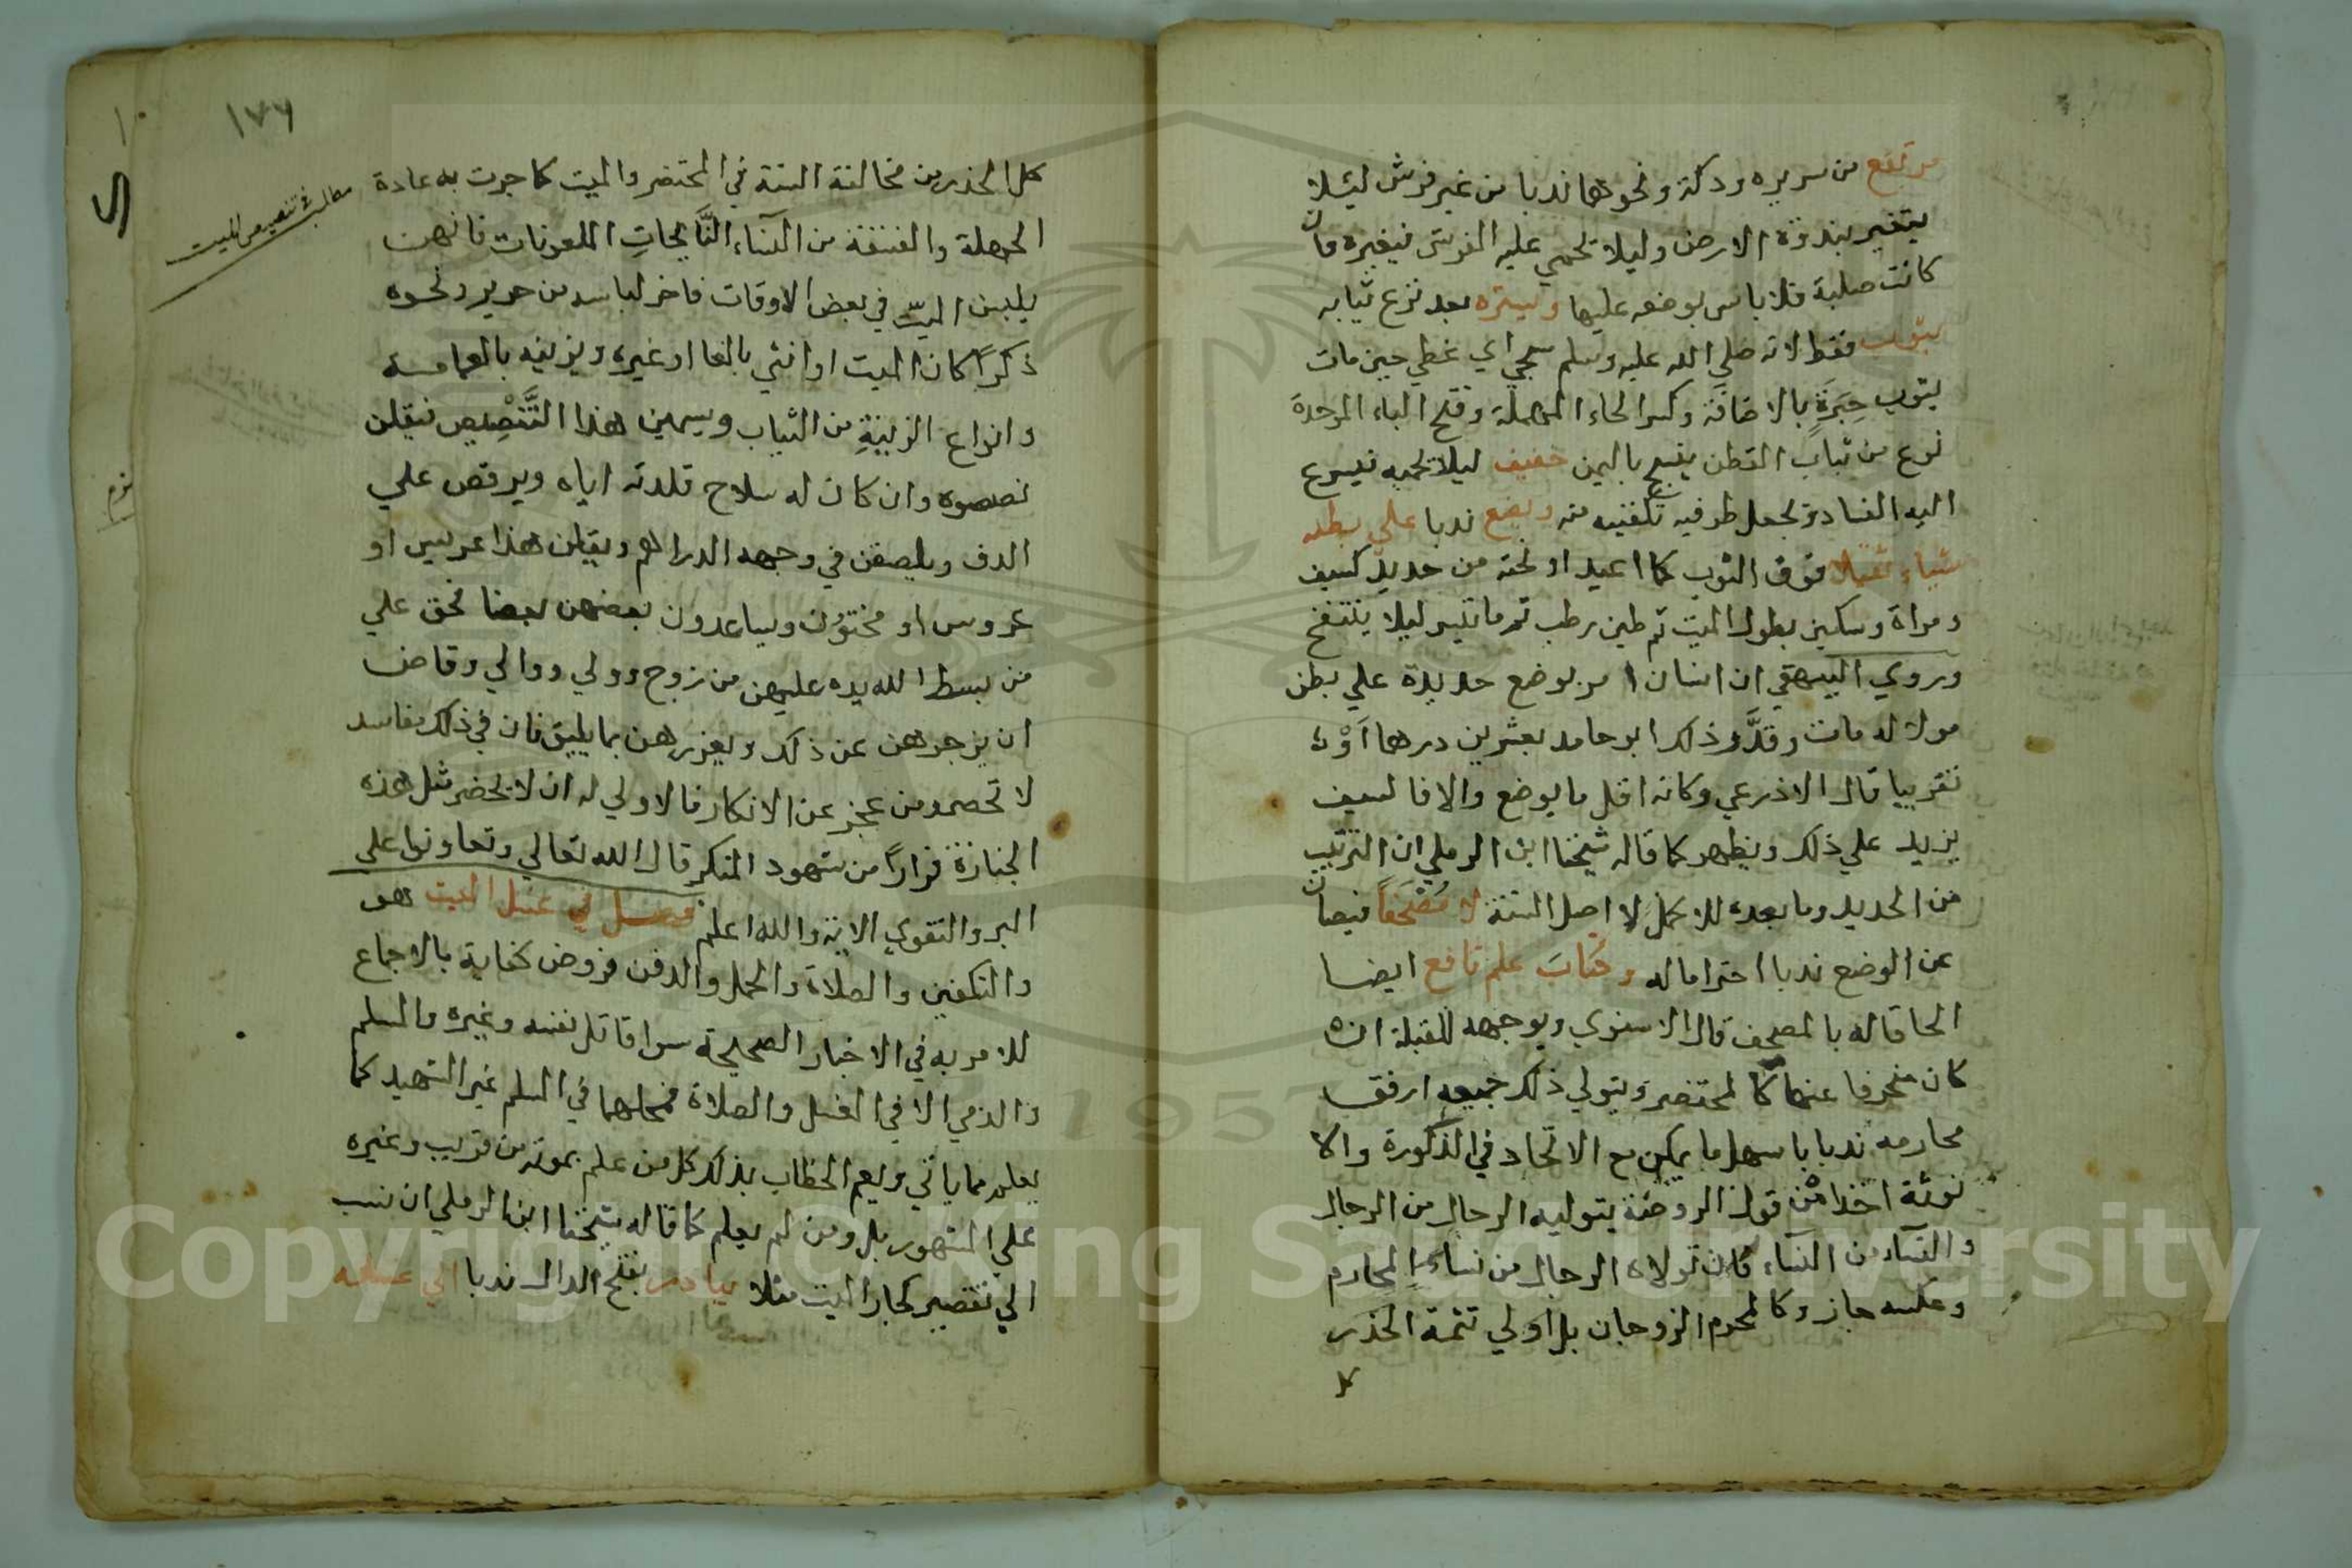 مرتفع من سرير ودكة ونحوهما ندبا من غير فرش ليئلا
يتغير بنداوة الارض وليلا تحمي عليه الفرش فيغيره فان
كانت صلبة فلا باس بوضعه عليها ويستره بعد نزع ثيابه
بثوب فقط لانه صلي الله عليه وسلم سجي اي غطي حين مات
بثوب حِبَرَةٍ بالاضافة وكسر الحاء المهملة وفتح الباء الموحدة
نوع من ثياب القطن ينسج باليمن خفيف ليلا تحميه فيسرع
اليه الفساد ويجعل طرفيه تحته ويضع ندبا علي بطنه
شياء ثقيلا فوق الثوب كما اعيد او تحته من حديد كسيف
ومراة وسكين بطول الميت ثم طين رطب ثم ما تيسر ليلا ينتفخ
وروي البيهقي ان انسان امر بوضع حديدة علي بطن
مولا له مات وقدَّر ذلك ابو حامد بعشرين درهما اَوْه
تقريبا قال الاذرعي وكانه اقل ما يوضع والا فالسيف
يزيد علي ذلك ويظهر كما قاله شيخنا ابن الرملي ان الترتيب
من الحديد وما بعده للاكمل لا اصل السنة لا مُصْحَفاً فيصان
عن الوضع ندبا احتراما له وكتابَ علم نافع ايضا
الحاقا له بالمصحف قال الاسنوي ويوجهه للقبلة ان
كان منحرفا عنها كالمحتضر ويتولي ذلك جميعه ارفق
محارمه ندبا باسهل ما يمكن مع الاتحاد في الذكورة والا
نوثة اخذا من قول الروضة يتوليه الرجال من الرجال
والنسآء من النسآء فان تولاه الرجال من نساءِ المحارم
وعكسه جاز وكالمحرم الزوجان بل اولي تتمة الحذر
كل
١٧٦
١٠
كل الحذر من مخالفة السنة في المحتضر والميت كما جرت به عادة
مطلب في تنصيص الميت
الجهلة والفسقة من النسآء النَّايحاتِ الملعونات فانهن
يلبسن الميّت في بعض الاوقات فاخر لباسه من حرير ونحوه
ذكرًا كان الميت او انثي بالغا او غيره ويزينه بالعمامة
وانواع الزينةِ من الثياب ويسمين هذا التَّنْصِيص فيقلن
نصصوه وان كان له سلاح قلدنه اياه ويرقصن علي
الدف ويلصقن في وجهه الدراهم ويقلن هذا عريس او
عروس او مختون ويساعدون بعضهن بعضا فحق علي
من بسط الله يده عليهن من زوج وولي ووالي وقاض
ان يزجرهن عن ذلك ويعزرهن بما يليق فان في ذلك مفاسد
لا تحصر ومن عجز عن الانكار فالاولي له ان لا يحضر مثل هذه
الجنازة فرارًا من شهود المنكر قال الله تعالي وتعاونوا علي
البر والتقوي الاية والله اعلم فصل في غسل الميت هو
والتكفين والصلاة والحمل والدفن فروض كفاية بالاجماع
للامر به في الاخبار الصحيحة سوا قاتل نفسه وغيره والمسلم
والذمي الا في الغسل والصلاة فمحلهما في المسلم غير الشهيد كما
يعلم مما ياتي ويعم الخطاب بذلك كل من علم بموته من قريب وغيره
علي المشهور بل ومن لم يعلم كما قاله شيخنا ابن الرملي ان نسب
الي تقصير كجار الميت مثلا يبادر بفتح الدال ندبا الي غسله
Copyright © King Saud University
1957